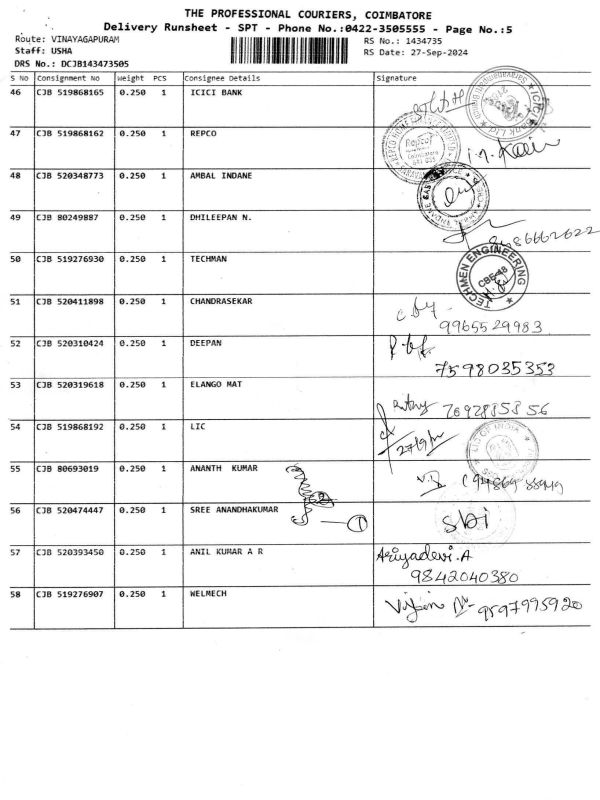 THE PROFESSIONAL COURIERS, COIMBATORE
Delivery Runsheet - SPT - Phone No.:0422-3505555 - Page No.:5
Route: VINAYAGAPURAM
RS No.: 1434735
Staff: USHA
RS Date: 27-Sep-2024
DRS No.: DCJB143473505
S No Consignment No Weight PCS Consignee Details Signature
46 CJB 519868165 0.250 1 ICICI BANK
47 CJB 519868162 0.250 1 REPCO
48 CJB 520348773 0.250 1 AMBAL INDANE
49 CJB 80249887 0.250 1 DHILEEPAN N.
50 CJB 519276930 0.250 1 TECHMAN
TECHMEN ENGINEERING
CBE-48
51 CJB 520411898 0.250 1 CHANDRASEKAR
9965529983
52 CJB 520310424 0.250 1 DEEPAN
7598035353
53 CJB 520319618 0.250 1 ELANGO MAT
54 CJB 519868192 0.250 1 LIC
LIC OF INDIA
55 CJB 80693019 0.250 1 ANANTH KUMAR
2
56 CJB 520474447 0.250 1 SREE ANANDHAKUMAR
1
sbi
57 CJB 520393450 0.250 1 ANIL KUMAR A R
Ariyadevi.A
9842040380
58 CJB 519276907 0.250 1 WELMECH
9597995920